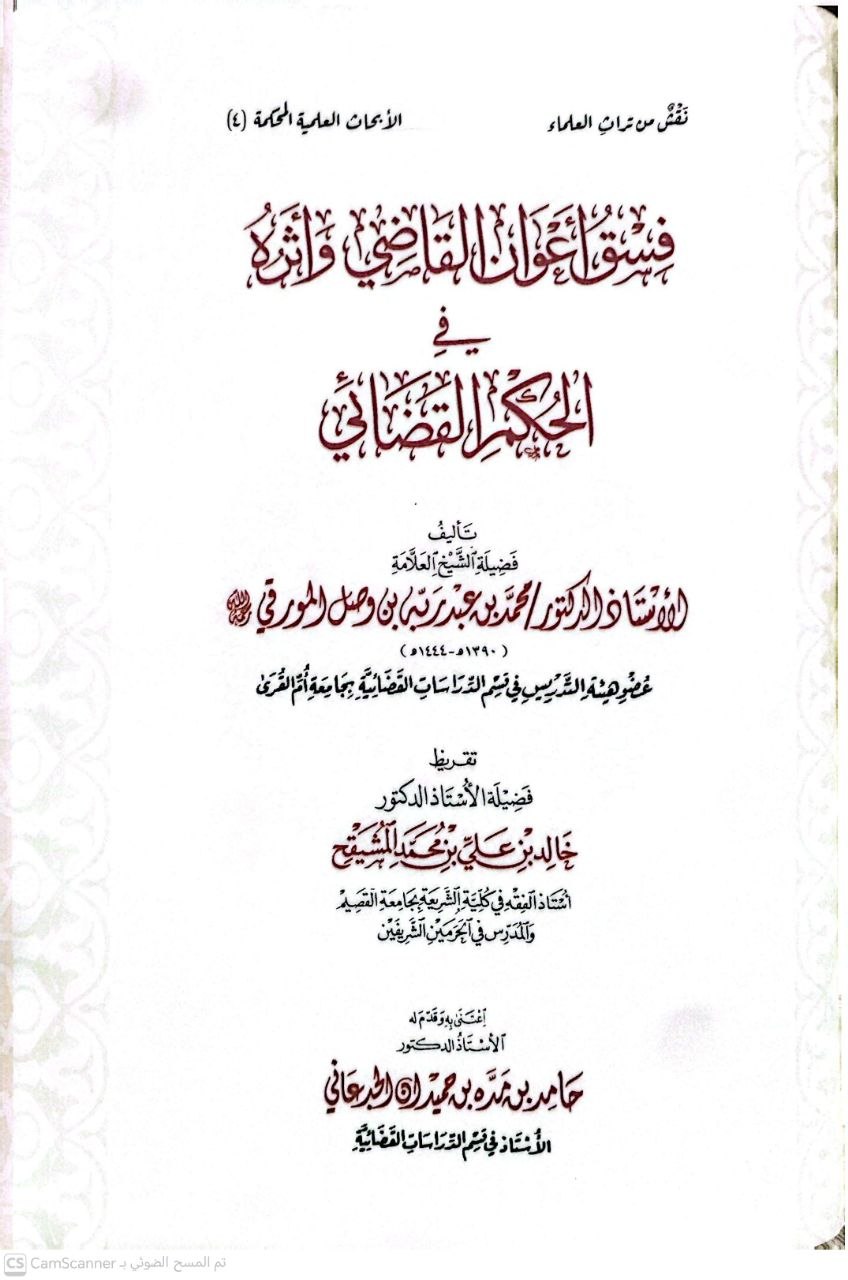 نَقْشٌ من تراث العلماء
الأبحاث العلمية المحكمة (٤)
فِسْقُ أَعْوَانِ القَاضِي وَأَثَرُهُ
فِي
الحُكْمِ القَضَائِي
تَأليفُ
فَضِيلَةِ الشَّيْخِ العَلَّامَةِ
الأسْتَاذ الدكتور/ محمَّد بن عبد ربه بن وصل المورقي رحمه الله
(١٣٩٠هـ-١٤٤٤هـ)
عُضْو هيئة التَّدْرِيسِ في قِسْمِ الدِّرَاسَاتِ القَضَائِيَّةِ بِجَامِعَةِ أُمِّ القُرَى
تقريظ
فَضِيلَة الأُسْتَاذ الدكتور
خَالِد بْنِ عَلِيِّ بْنِ مُحَمَّدِ المُشَيْقِح
أُسْتَاذ الفِقْهِ في كُلِّيَّةِ الشَّرِيعَةِ بِجَامِعَةِ القَصِيمِ
وَالمُدَرِّس في الحَرَمَيْنِ الشَّرِيفَيْنِ
اِعْتَنَى بِهِ وَقَدَّمَ لَه
الأُسْتَاذُ الدكتور
حَامِد بن مَدَّه بن حميدان الجدعاني
الأُسْتَاذ في قِسْمِ الدِّرَاسَاتِ القَضَائِيَّةِ
CS CamScanner تم المسح الضوئي بـ